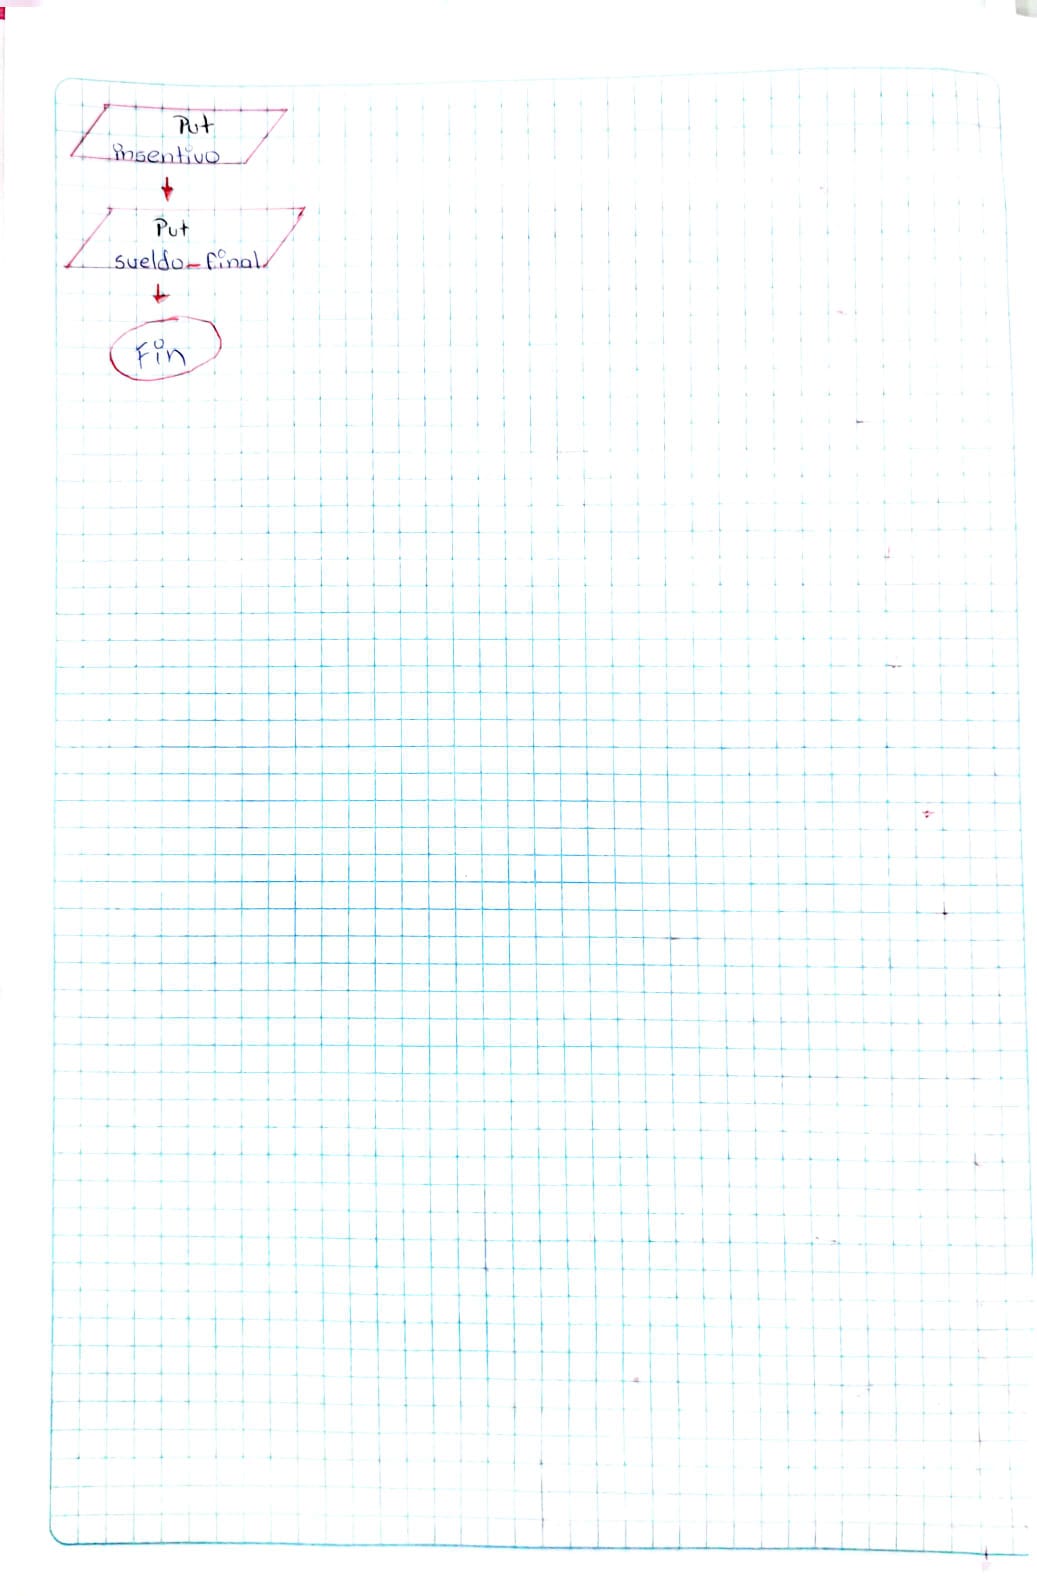 Put
insentivo
Put
sueldo_final
Fin